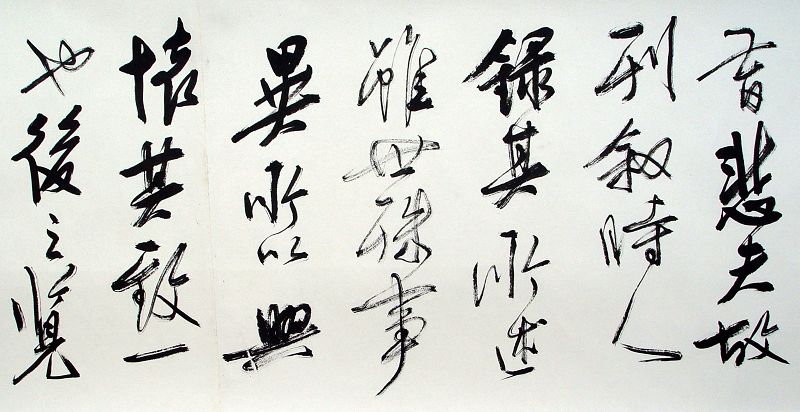 昔悲夫故
列叙時人
録其所述
雖世殊事
異所以興
懐其致一
也後之覽